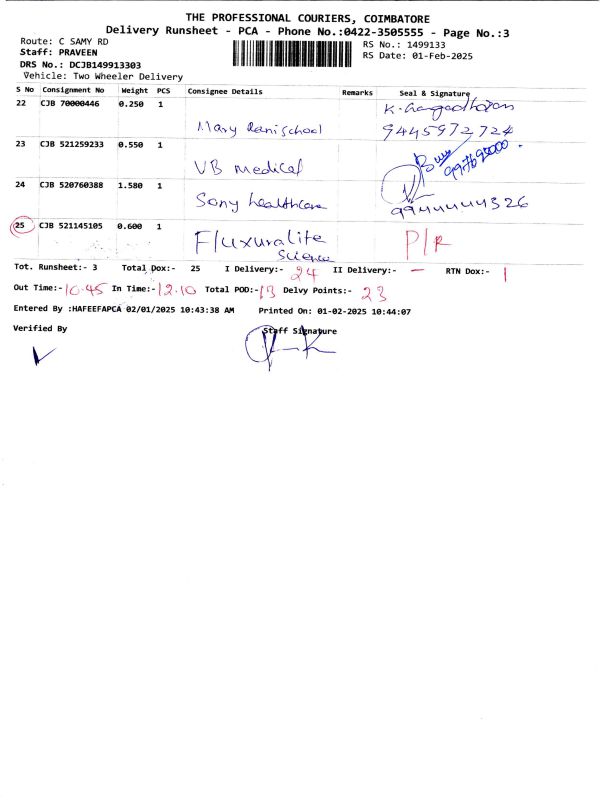 THE PROFESSIONAL COURIERS, COIMBATORE
Delivery Runsheet - PCA - Phone No.:0422-3505555 - Page No.:3
Route: C SAMY RD
RS No.: 1499133
Staff: PRAVEEN
RS Date: 01-Feb-2025
DRS No.: DCJB149913303
Vehicle: Two Wheeler Delivery
S No Consignment No Weight PCS Consignee Details Remarks Seal & Signature
22 CJB 70000446 0.250 1 K. Gangadharan
Mary Rani school 9445972724
23 CJB 521259233 0.550 1
VB medical
24 CJB 520760388 1.580 1
Sony healthcare 9944444326
25 CJB 521145105 0.600 1
Fluxuralite P/R
Science
Tot. Runsheet:- 3 Total Dox:- 25 I Delivery:- 24 II Delivery:- - RTN Dox:- 1
Out Time:- 10.45 In Time:- 12.10 Total POD:- 13 Delvy Points:- 23
Entered By :HAFEEFAPCA 02/01/2025 10:43:38 AM Printed On: 01-02-2025 10:44:07
Verified By Staff Signature